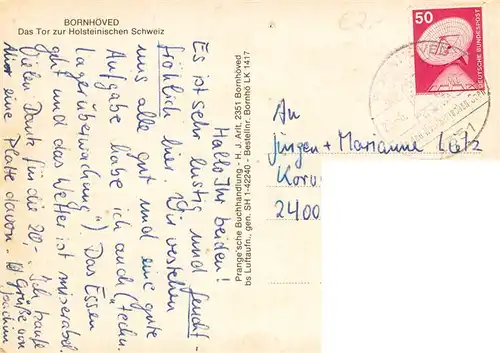 BORNHÖVED
Das Tor zur Holsteinischen Schweiz
Hallo Ihr beiden!
Es ist sehr lustig und feucht-
fröhlich hier. Wir verstehen
uns alle gut und eine gute
Aufgabe habe ich auch ("techn.
Lagerüberwachung"). Das Essen
geht und das Wetter ist miserabel.
Vielen Dank für die 20,-. Ich kaufe
mir eine Platte davon. Grüße von
Joachim
Prange'sche Buchhandlung - H. J. Arlt, 2351 Bornhöved
bs Luftaufn., gen. SH 1-42240 - Bestellnr. Bornhö LK 1417
€2,-
50
DEUTSCHE BUNDESPOST
2351
An
Jürgen + Marianne Lütz
Koru
2400